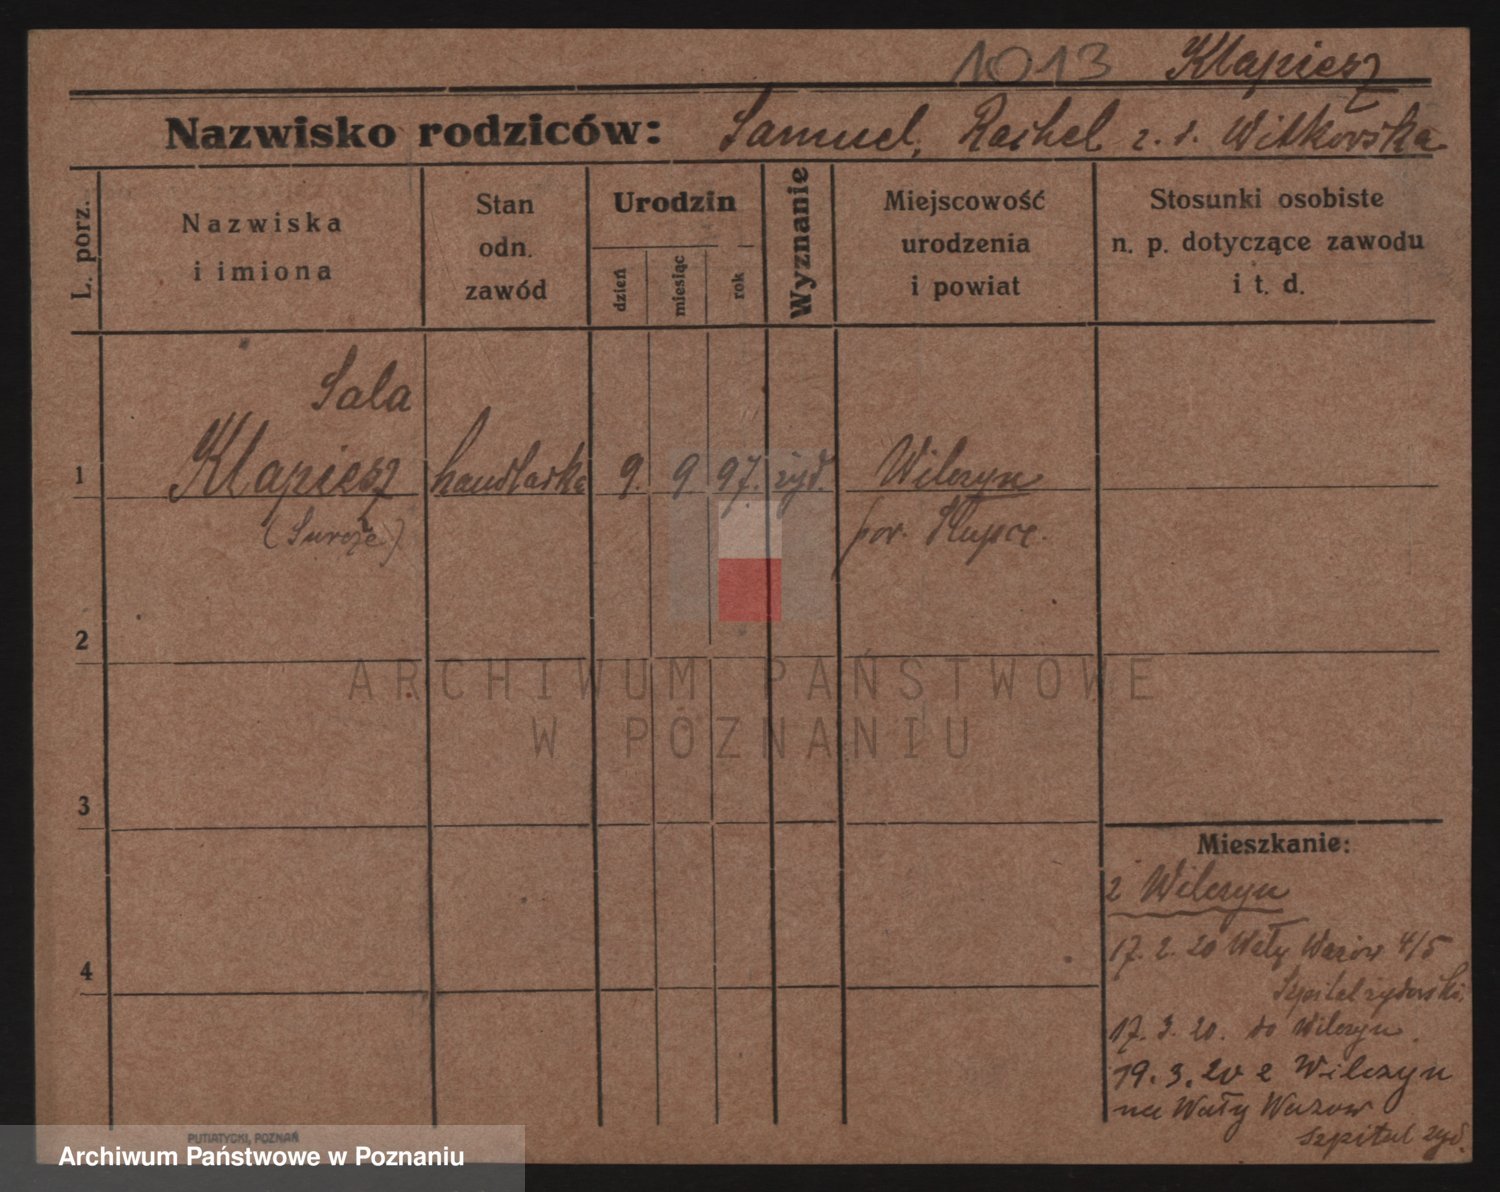 1013 Klapiesz
Nazwisko rodziców: Samuel, Rachel z. d. Witkowska
L. porz.
Nazwiska
i imiona
Stan
odn.
zawód
Urodzin
dzień
miesiąc
rok
Wyznanie
Miejscowość
urodzenia
i powiat
Stosunki osobiste
n. p. dotyczące zawodu
i t. d.
Sala
1 Klapiesz handlarka 9. 9. 97. żyd. Wilczyn
pow. Słupce.
2
ARCHIWUM PAŃSTWOWE
W POZNANIU
3
Mieszkanie:
z Wilczyn
4
17. 2. 20 Wały Wazów 4/5
Szpital żydowski.
17. 3. 20. do Wilczyn.
19. 3. 20 z Wilczyn
na Wały Wazow
szpital żyd.
PUTIATYCKI, POZNAŃ
Archiwum Państwowe w Poznaniu